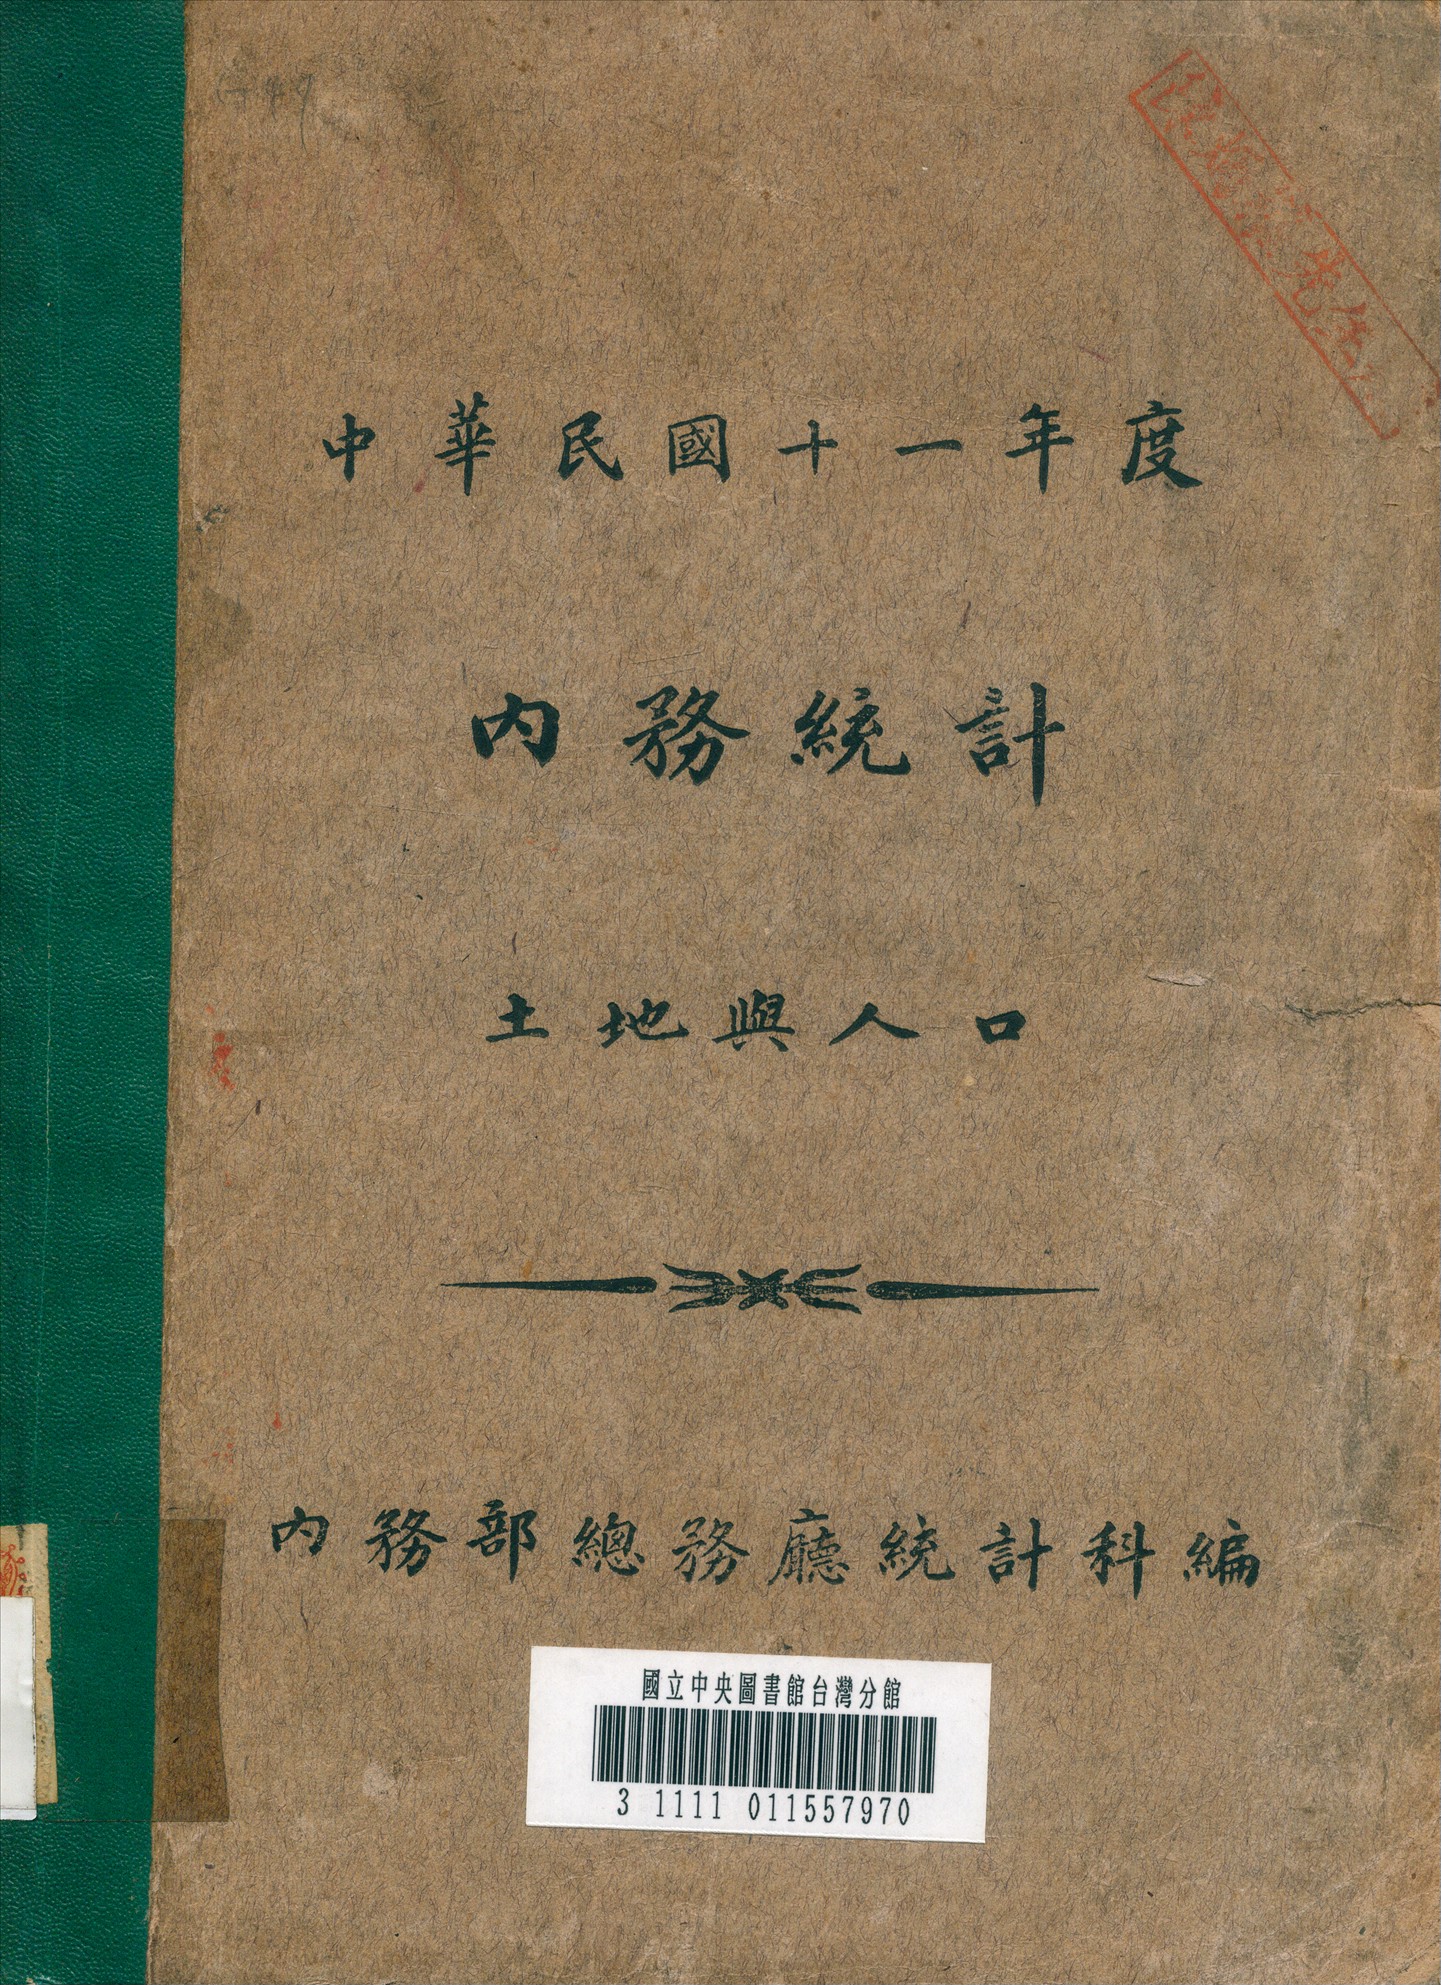 中華民國十一年度
內務統計
土地與人口
內務部總務廳統計科編
國立中央圖書館台灣分館
3 1111 011557970
先生